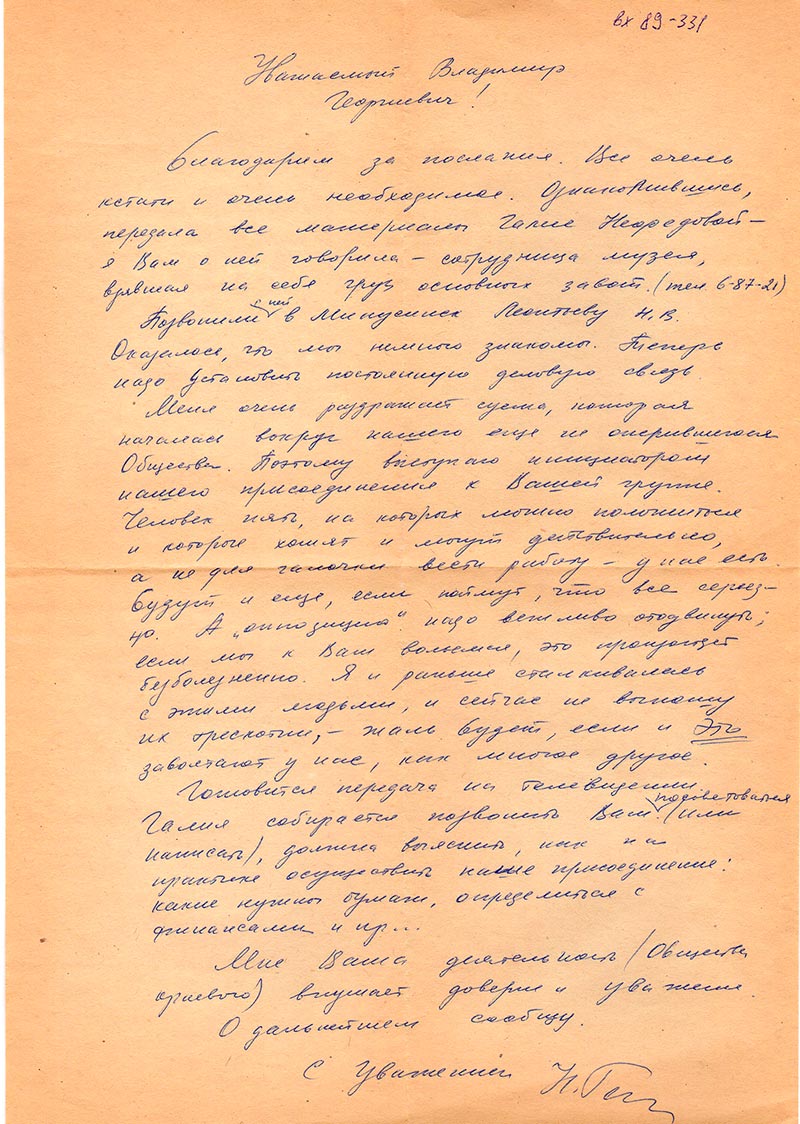 вх 89-331
Уважаемый Владимир
Георгиевич!
Благодарим за послания. Все очень
кстати и очень необходимое. Ознакомившись,
передала все материалы Галие Нефедовой –
я Вам о ней говорила – сотрудница музея,
взявшая на себя груз основных забот. (тел. 6-87-21)
Позвонили с ней в Минусинск Леонтьеву Н.В.
Оказалось, что мы немного знакомы. Теперь
надо установить постоянную деловую связь.
Меня очень раздражает суета, которая
началась вокруг нашего еще не оперившегося
Общества. Поэтому выступаю инициатором
нашего присоединения к Вашей группе.
Человек пять, на которых можно положиться
и которые хотят и могут действительно,
а не для галочки вести работу – у нас есть.
Будут и еще, если поймут, что все серьез-
но. А „оппозицию" надо вежливо отодвинуть;
если мы к Вам вольемся, это произойдет
безболезненно. Я и раньше сталкивалась
с этими людьми, и сейчас не выношу
их трескотни, – жаль будет, если и Это
заболтают у нас, как многое другое.
Готовится передача на телевидении.
Галия собирается позвонить Вам посоветоваться (или
написать), должна выяснить, как на
практике осуществить наше присоединение:
какие нужны бумаги, определиться с
финансами и пр...
Мне Ваша деятельность (Общества
краевого) внушает доверие и уважение.
О дальнейшем сообщу.
С Уважением Н.